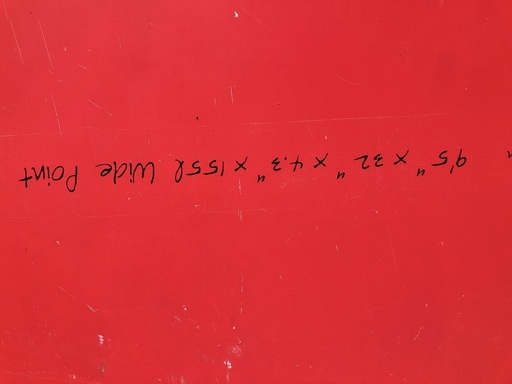 9'5" x 32" x 4.3" x 155l Wide Point